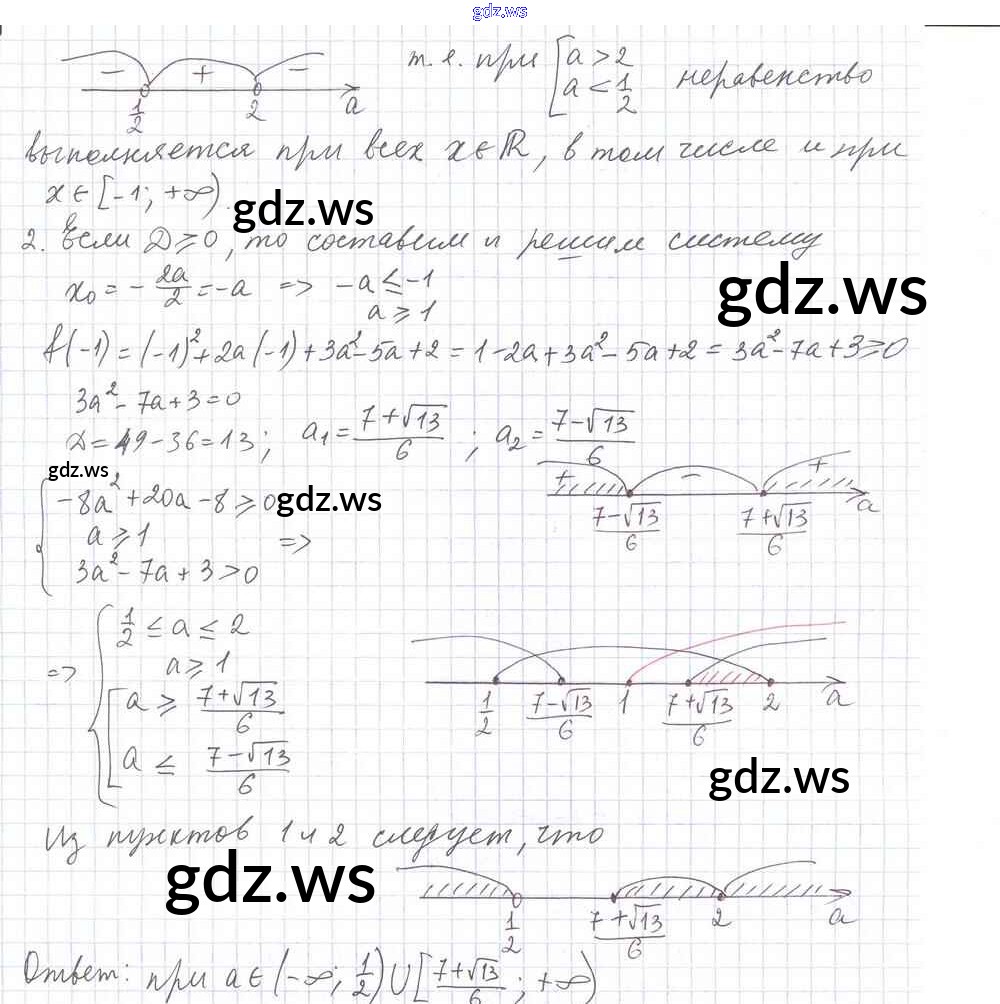 gdz.ws
− + −
1/2 2 a
т. е. при [ a > 2
a < 1/2 неравенство
выполняется при всех x ∈ ℝ, в том числе и при
x ∈ [-1; +∞).
gdz.ws
2. Если D ≥ 0, то составим и решим систему
x₀ = - 2a/2 = -a => -a ≤ -1
a ≥ 1
gdz.ws
f(-1) = (-1)² + 2a(-1) + 3a² - 5a + 2 = 1 - 2a + 3a² - 5a + 2 = 3a² - 7a + 3 ≥ 0
3a² - 7a + 3 = 0
D = 49 - 36 = 13; a₁ = (7 + √13)/6 ; a₂ = (7 - √13)/6
gdz.ws
+ − +
(7-√13)/6 (7+√13)/6 a
{ -8a² + 20a - 8 ≥ 0
gdz.ws
a ≥ 1 =>
3a² - 7a + 3 > 0
=> { 1/2 ≤ a ≤ 2
a ≥ 1
[ a ≥ (7 + √13)/6
a ≤ (7 - √13)/6
1/2 (7-√13)/6 1 (7+√13)/6 2 a
gdz.ws
Из пунктов 1 и 2 следует, что
gdz.ws
1/2 (7+√13)/6 2 a
Ответ: при a ∈ (-∞; 1/2) ∪ [(7+√13)/6; +∞)
gdz.ws